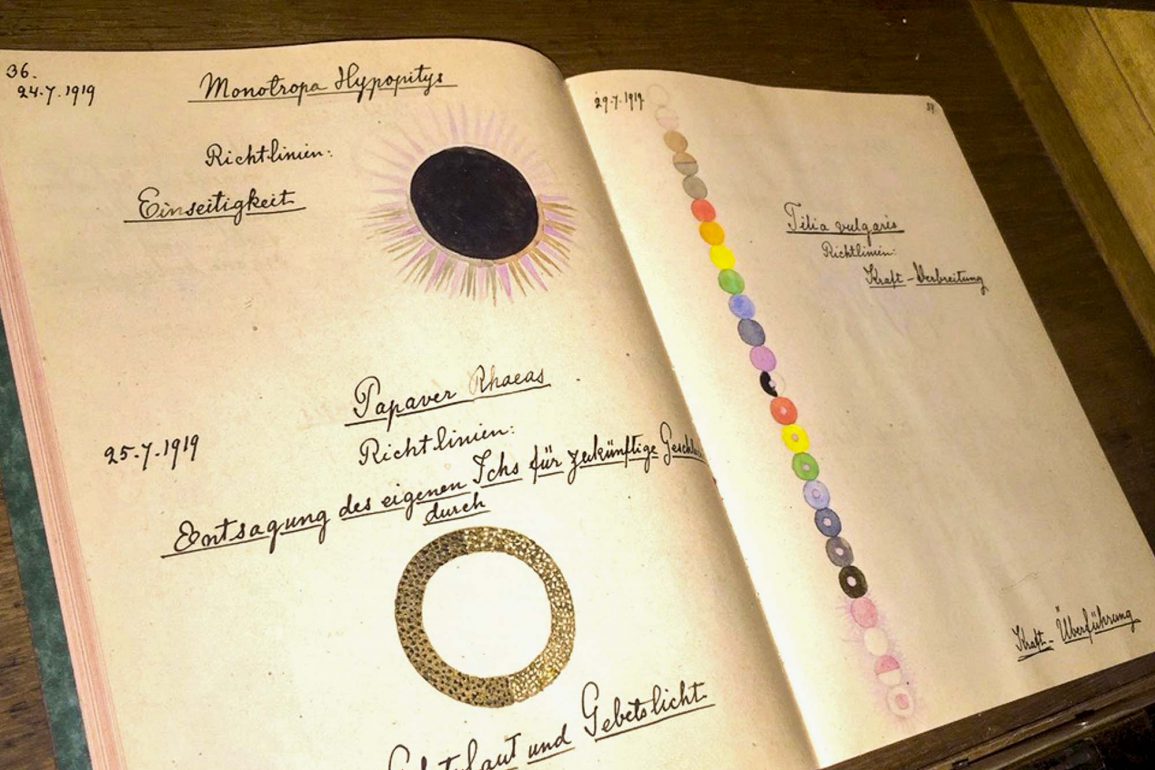 36.
24.7.1919
Monotropa Hypopitys
Richtlinien:
Einseitigkeit
25.7.1919
Papaver Rhaeas
Richtlinien:
Entsagung des eigenen Ichs für zukünftige
durch
und Gebetslicht
29.7.1919
Tilia vulgaris
Richtlinien:
Kraft-Verbreitung
Kraft-Überführung